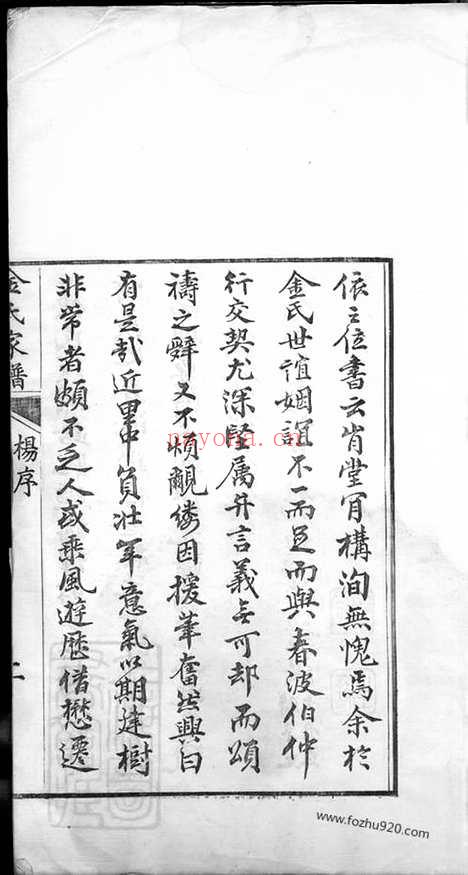 依之位書云肯堂肯構洵無愧焉余於
金氏世誼姻誼不一而足而與春波伯仲
行交契尤深堅属弁言義無可却而頌
禱之辭又不憚覼缕因援筆奮然興曰
有是哉近里中負壯年意氣以期建樹
非常者頗不乏人或乘風遊歷借懋遷
金氏家譜
楊序
二
nayona.cn
www.fozhu920.com